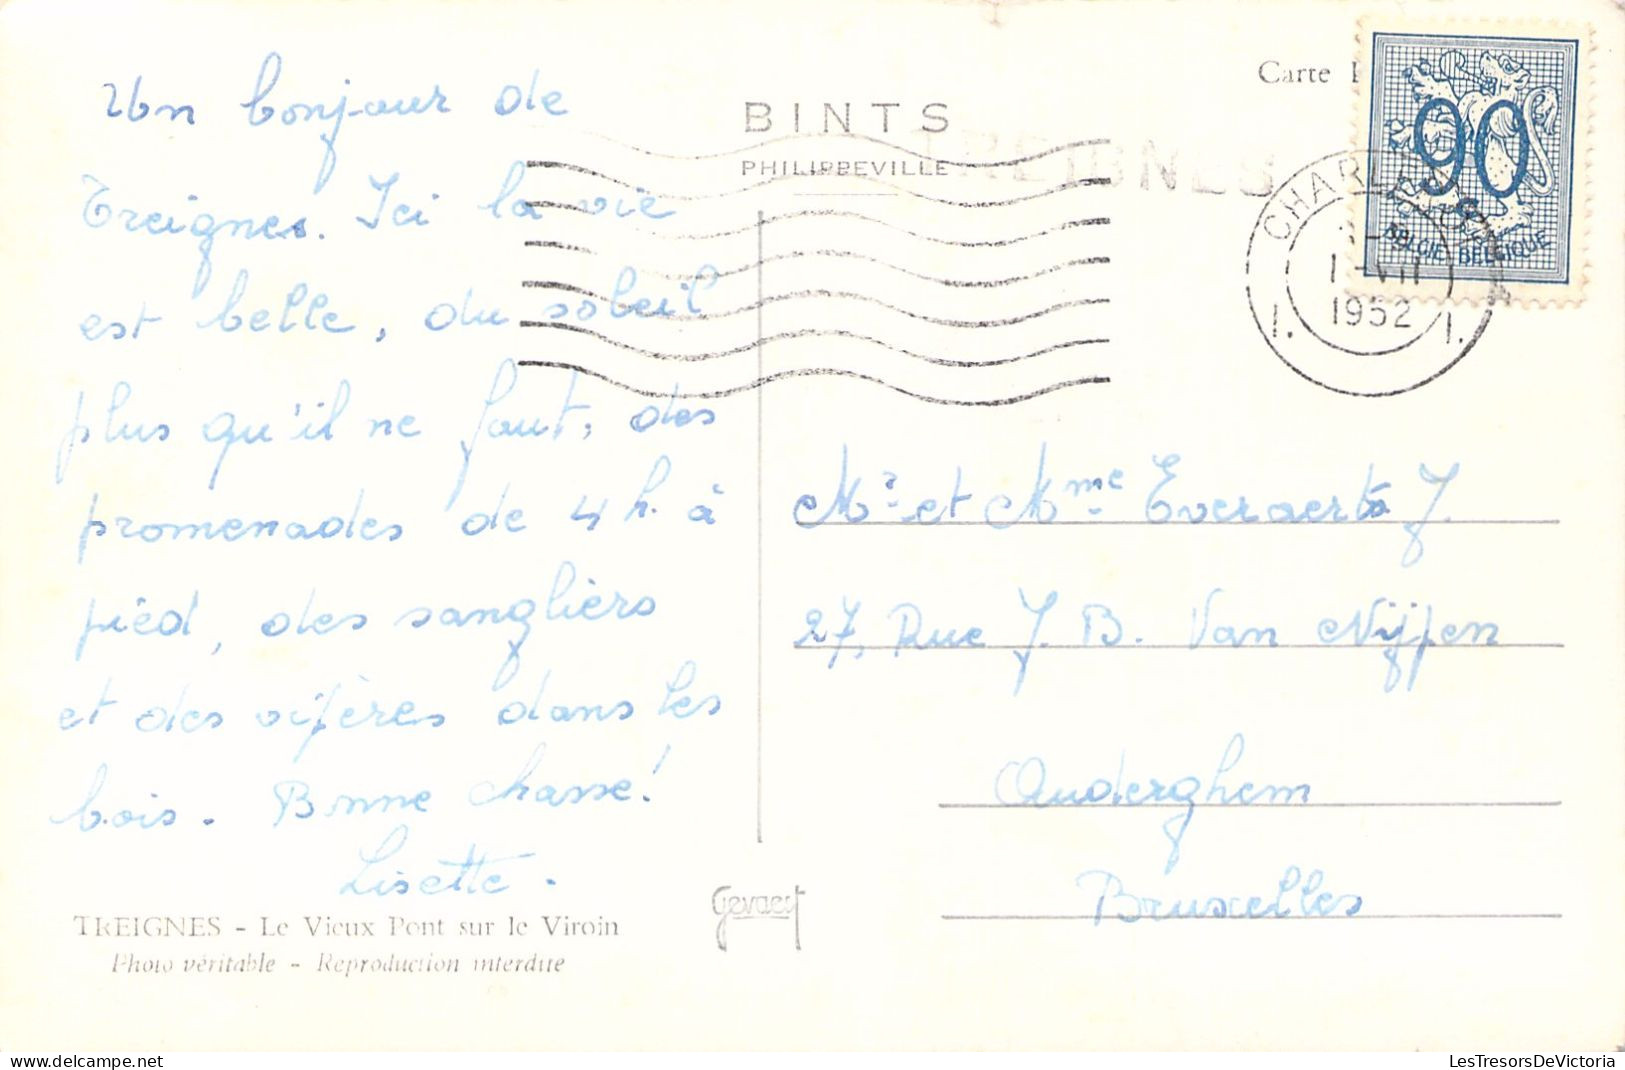 Un bonjour de
Treignes. Ici la vie
est belle, du soleil
plus qu'il ne faut, des
promenades de 4 h. à
pied, des sangliers
et des vipères dans les
bois. Bonne chasse!
Lisette.
TREIGNES - Le Vieux Pont sur le Viroin
Photo véritable - Reproduction interdite
BINTS
PHILIPPEVILLE
TREIGNES
Gevaert
Carte
90
BELGIE BELGIQUE
1952
I. I.
Mr et Mme Everaerts J.
27, Rue J. B. Van Nijpen
Auderghem
Bruxelles
LesTresorsDeVictoria
delcampe.net